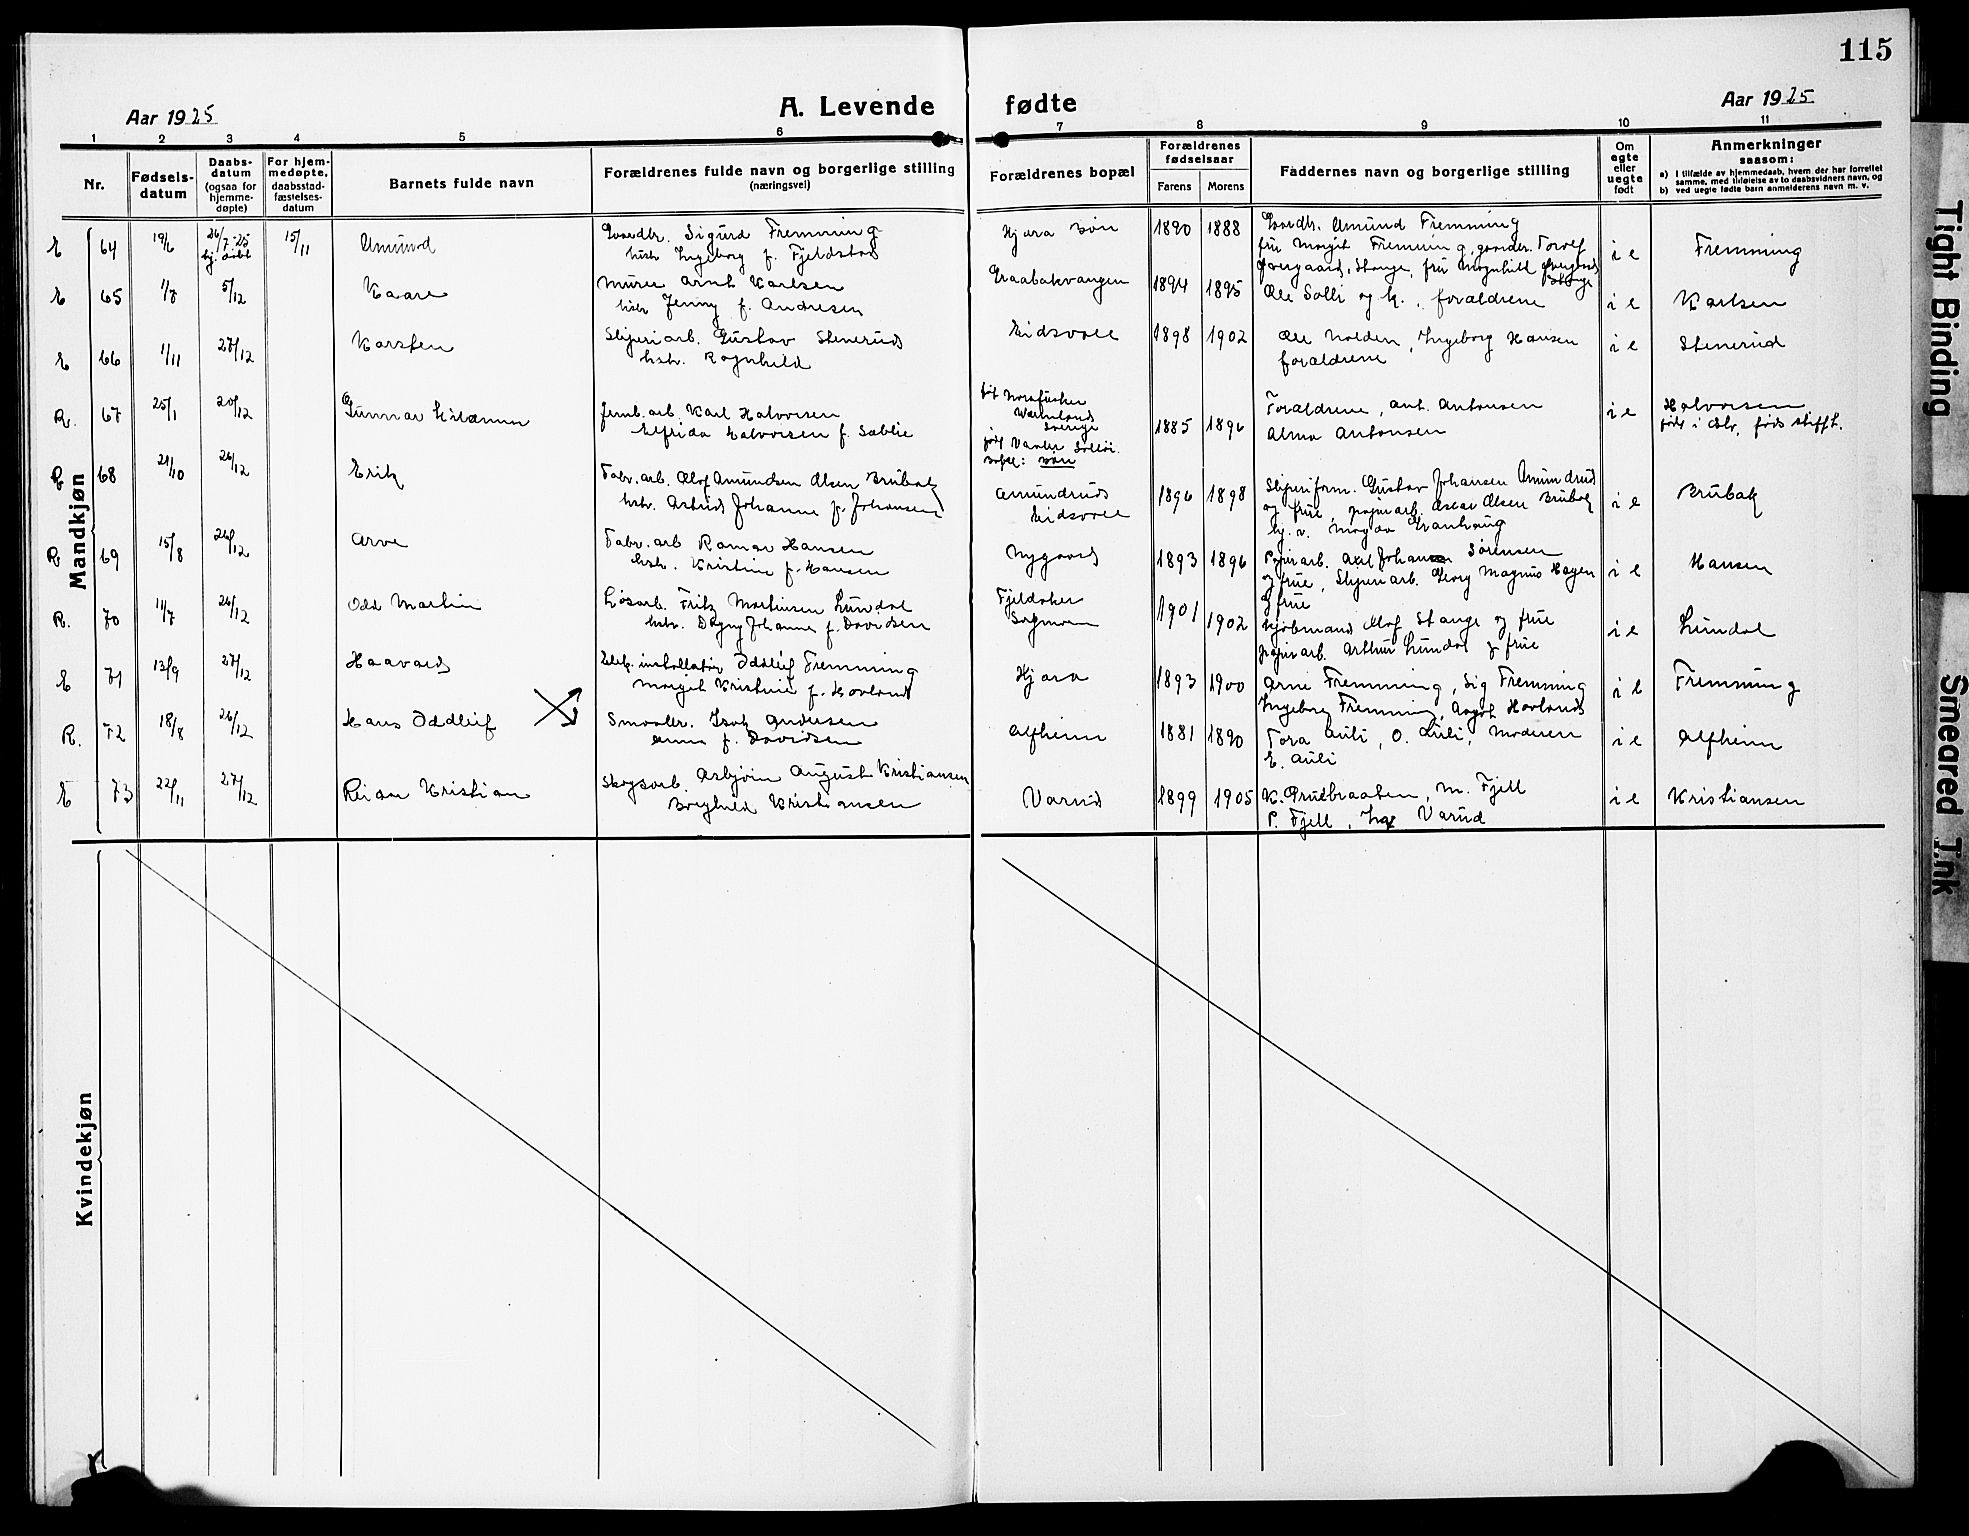 115
Aar 1925
A. Levende fødte
Aar 1925
1 2 3 4 5 6 7 8 9 10 11
Nr.
Fødsels-
datum
Daabs-
datum
(ogsaa for
hjemme-
døpte)
For hjem-
medøpte,
daabsstad-
fæstelses-
datum
Barnets fulde navn
Forældrenes fulde navn og borgerlige stilling
(næringsvei)
Forældrenes bopæl
Forældrenes
fødselsaar
Farens Morens
Faddernes navn og borgerlige stilling
Om
egte
eller
uegte
født
Anmerkninger
saasom:
a) I tilfælde av hjemmedaab, hvem der har forrettet
samme, med tilføielse av to daabsvidners navn, og
b) ved uegte fødte barn anmelderens navn m. v.
Mandkjøn
E 64 19/6 26/7-25 15/11 Amund
Gaardbr. Sigurd Fremming
hustr. Ingeborg f. Fjeldstad
Hjera Bøn 1890 1888
Gaardbr. Amund Fremming
fru Margit Fremming, gaardbr. Torolf
Overgaard, Stange, fru Magnhild Overgaard
Stange
i e Fremming
E 65 1/8 5/12 Kaare
Murer Arnt Karlsen
hstr. Jenny f. Andresen
Graabakvangen 1894 1895
Ole Solli og k., forældrene
i e Karlsen
E 66 1/11 27/12 Karsten
Sliperiarb. Gustav Stenerud
hstr. Ragnhild
Eidsvoll 1898 1902
Ole Holden, Ingeborg Hansen
forældrene
i e Stenerud
R. 67 25/1 20/12 Gunnar
Jernb. arb. Karl Halvorsen
Elfrida Halvorsen f. Sæblie
Wermland
Sverige
bopæl: Bøn
1885 1896
Forældrene, Ant. Antonsen
Alma Antonsen
i e Halvorsen
R 68 21/10 26/12 Erik
Fabr. arb. Olof Amundsen Olsen Brubak
hstr. Astrid Johanne f. Johansen
Amundrud
Eidsvoll
1896 1898
Sliperiform. Gustav Johansen Amundrud
og frue, papirarb. Oscar Olsen Brubak
Magda Granhaug
i e Brubak
R 69 15/8 26/12 Arve
Fabr. arb Ragnar Hansen
hstr. Kristine f. Hansen
Nygaard 1893 1896
Papirarb. Axel Johan Sørensen
og frue, Sliperiarb. Georg Magnus Hagen
og frue
i e Hansen
R. 70 11/7 26/12 Odd Martin
Løsarb. Fritz Martinsen Lundal
hstr. Dagny Johanne f. Davidsen
Fjeldaker
Sagmoen
1901 1902
Kjøbmand Olof Stange og frue
papirarb. Arthur Lundal og frue
i e Lundal
E 71 13/9 27/12 Haavard
Elek. installatør Oddleif Fremming
Margit Kristine f. Hovland
Hjera 1893 1900
Arne Fremming, Sig Fremming
Ingeborg Fremming, Aagot Hovland
i e Fremming
R. 72 18/8 26/12 Hans Oddleif
Smaabr. Isak Andersen
Anna f. Davidsen
Alfheim 1881 1890
Tora Auli, O. Auli, Moderen
E. Auli
i e Alfheim
E 73 22/11 27/12 Reidar Kristian
Skogsarb. Asbjørn August Kristiansen
Borghild Kristiansen
Varud 1899 1905
K. Prustbraaten, M. Fjell
P. Fjell, Inge Varud
i e Kristiansen
Kvindekjøn
Tight Binding
Smeared Ink